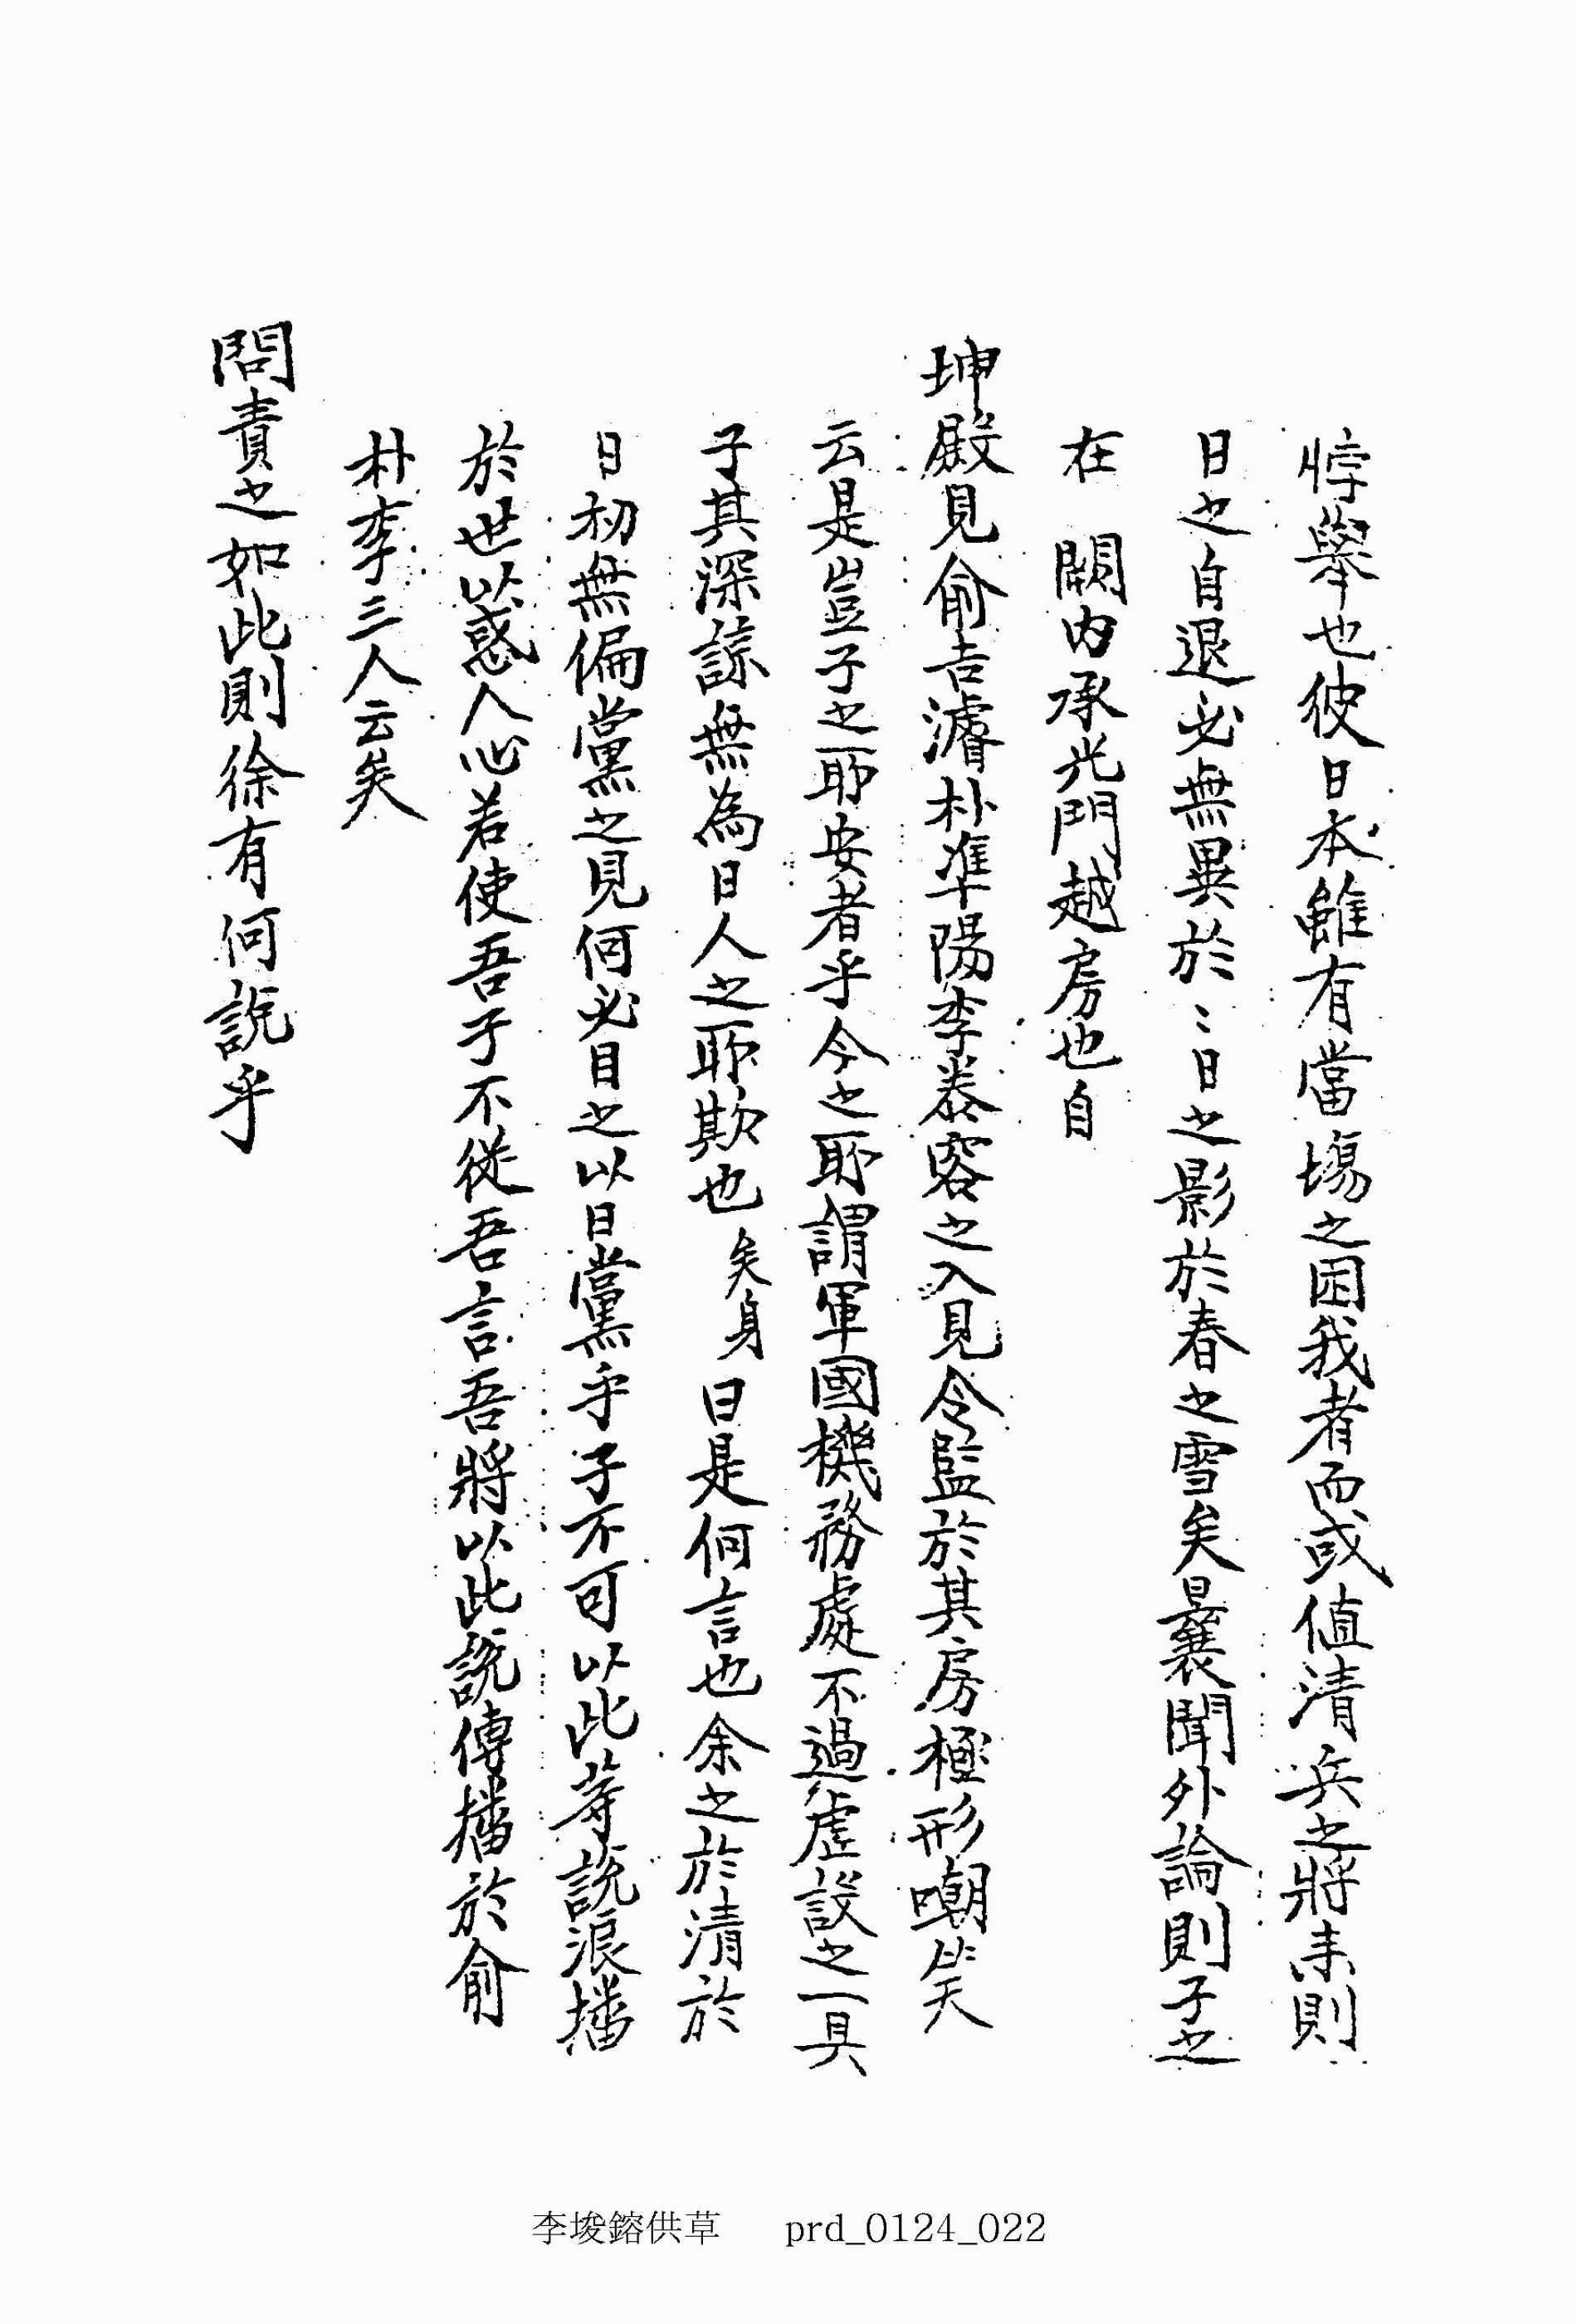 悖擧也彼日本雖有當場之困我者而或値清兵之將來則
日之自退必無異於〻日之影於春之雪矣曩聞外論則子之
在　闕內承光門越房也自
坤殿見俞吉濬朴準陽李泰容之入見令監於其房極形嘲笑
云是豈子之耶安者乎今之耶謂軍國機務處不過虛設之一具
子其深諒無為日人之耶欺也矣身曰是何言也余之於清於
日初無偏黨之見何必目之以日黨乎子不可以此等說浪播
於世以惑人心若使吾子不從吾言吾將以此說傳播於俞
朴李三人云矣
問責之如此則徐有何說乎
李埈鎔供草 prd_0124_022